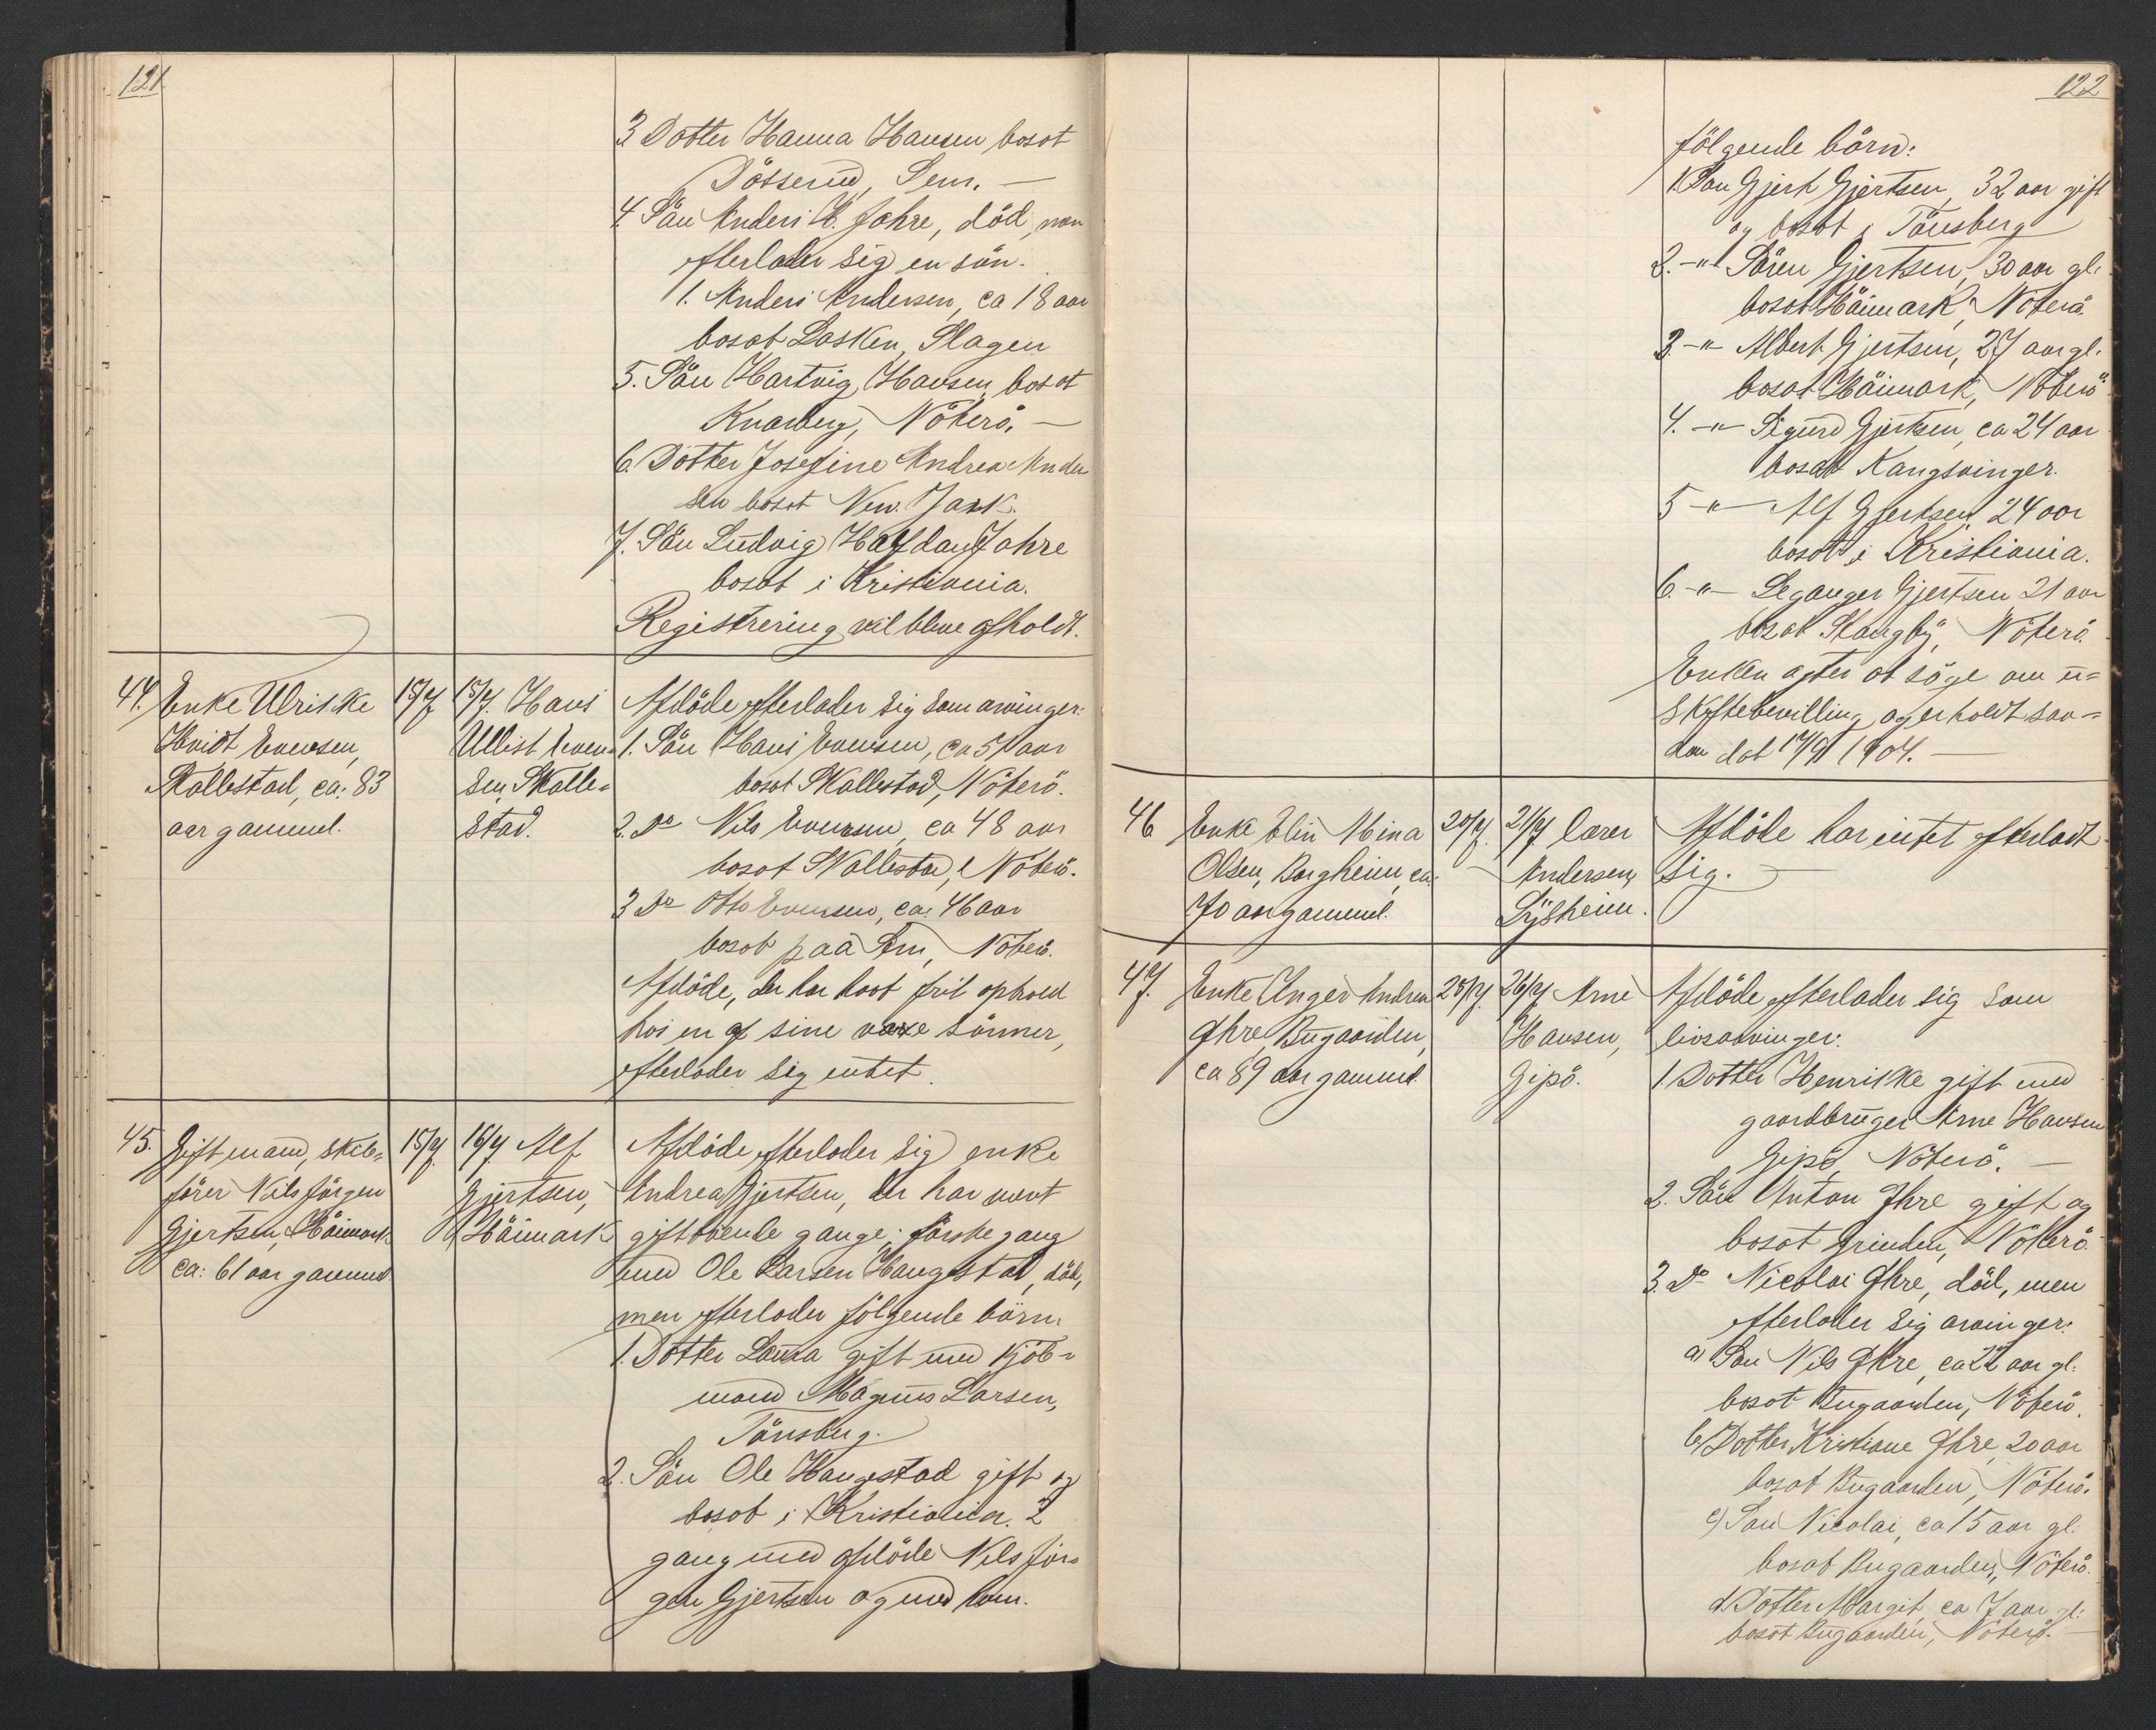 121
3 Datter Hanna Hansen bosat
Sem. —
4. Sön Anders H. Jahre, död, men
efterlader sig en sön.
1. Anders Andersen, ca 18 aar
bosat Basken, Slagen
5. Sön Hartvig Hansen bosat
Knarberg, Nöterö. —
6. Datter Josefine Andrea Ander
sen bosat New. York.
7. Sön Ludvig Halfdan Jahre
bosat i Kristiania.
Registrering vil blive afholdt.
44. Enke Ulrikke
Hvidt Evensen,
Skallestad, ca: 83
aar gammel.
15/7
15/7. Hans
Ullist Even-
sen, Skalle-
stad.
Afdöde efterlader sig som arvinger:
1. Sön Hans Evensen, ca 51 aar
bosat Skallestad, Nöterö.
2. Do Nils Evensen, ca 48 aar
bosat Skallestad, Nöterö.
3 Do Otto Evensen, ca: 46 aar
bosat paa Nöterö.
Afdöde, der har havt frit ophold
hos en af sine voxne sönner,
efterlader sig intet.
45. Gift mand, skibs-
förer Nils Jörgen
Gjertsen, Häimark
ca: 61 aar gammel
15/7
16/7 Alf
Gjertsen,
Häimark
Afdöde efterlader sig enke
Andrea Gjertsen, der har været
gift tvende gange; förste gang
med Ole Larsen Haugestad, död,
men efterlader fölgende börn:
1. Datter Laura gift med kjöb-
mand Magnus Larsen,
Tönsberg.
2. Sön Ole Haugestad gift og
bosat i Kristiania. 2
gang med afdöde Nils Jör-
gen Gjertsen og med ham.
122
fölgende börn:
1. Sön Gjert Gjertsen, 32 aar gift
og bosat i Tönsberg
2. -"- Sören Gjertsen, 30 aar gl.
bosat Häimark, Nöterö.
3. -"- Albert Gjertsen, 27 aar gl.
bosat Häimark, Nöterö.
4. -"- Sigurd Gjertsen, ca 24 aar
bosat Kongsvinger.
5 -"- Alf Gjertsen, 24 aar
bosat i Kristiania.
6. -"- Leganger Gjertsen 21 aar
bosat Skangby, Nöterö.
Enken agter at söge om u-
skiftebevilling, og erholdt saa-
dan dat 1904. —
46 Enke Elin Mina
Olsen, Borgheim, ca:
70 aar gammel.
20/7.
21/7 lærer
Andersen,
Lysheim.
Afdöde har intet efterladt
sig. —
47. Enke Inger Andrea
Ihre, Bugaarden,
ca 89 aar gammel.
25/7.
26/7 Arne
Hansen,
Gipö.
Afdöde efterlader sig som
livsarvinger:
1 Datter Henrikke gift med
gaardbruger Arne Hansen
Gipö, Nöterö. —
2. Sön Anton Ihre gift og
bosat Grinden, Nöterö.
3. Do Nicolai Ihre, död, men
efterlader sig arvinger:
a) Sön Nils Ihre, ca 22 aar gl.
bosat Bugaarden, Nöterö.
b) Datter Kristiane Ihre, 20 aar
bosat Bugaarden, Nöterö.
c) Sön Nicolai, ca 15 aar gl.
bosat Bugaarden, Nöterö.
d. Datter Margit, ca 7 aar gl.
bosat Bugaarden, Nöterö. —